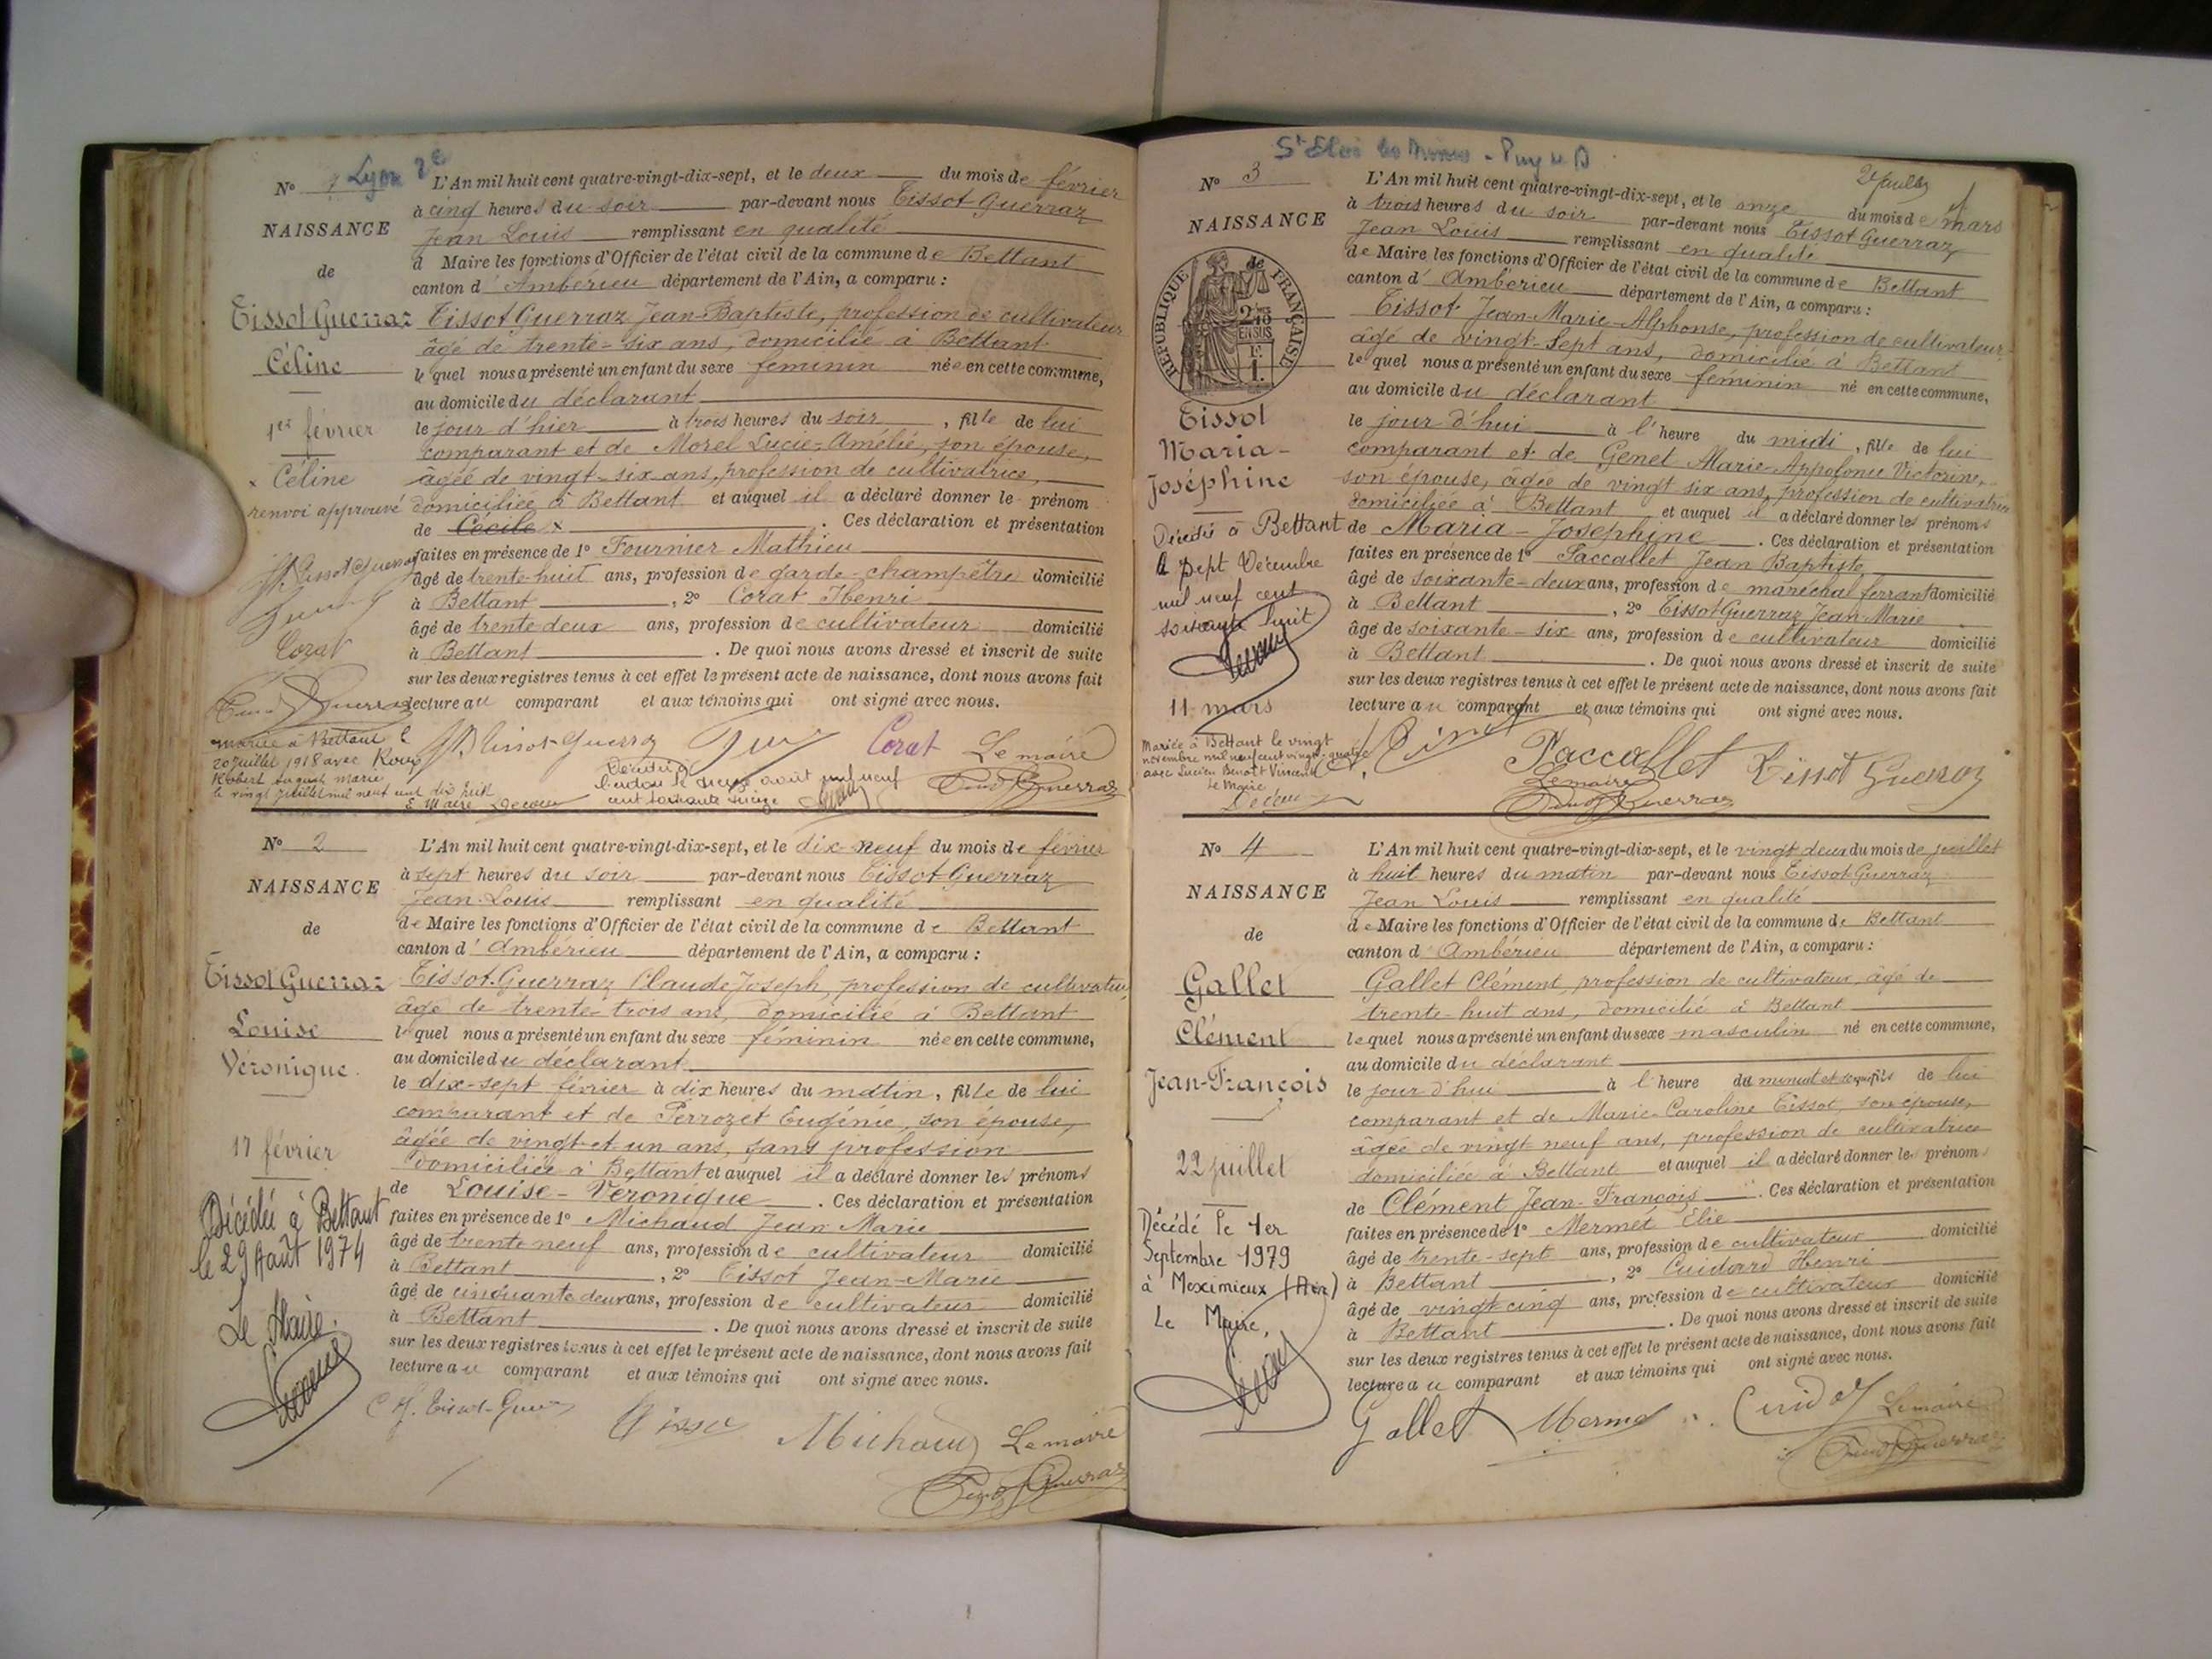 Lyon 2e
N° 1
NAISSANCE
de
Tissot Guerraz
Céline
1er février
x Céline
renvoi approuvé
Corat
L'An mil huit cent quatre-vingt-dix-sept, et le deux du mois de février
à cinq heures du soir par-devant nous Tissot Guerraz
Jean Louis remplissant en qualité
d Maire les fonctions d'Officier de l'état civil de la commune de Bettant
canton d'Ambérieu département de l'Ain, a comparu :
Tissot Guerraz Jean-Baptiste, profession de cultivateur
âgé de trente-six ans, domicilié à Bettant
lequel nous a présenté un enfant du sexe féminin née en cette commune,
au domicile du déclarant
le jour d'hier à trois heures du soir, fille de lui
comparant et de Morel Lucie-Amélie, son épouse,
âgée de vingt-six ans, profession de cultivatrice,
domiciliée à Bettant et auquel il a déclaré donner le prénom
de Cécile x. Ces déclaration et présentation
faites en présence de 1° Fournier Mathieu
âgé de trente-huit ans, profession de garde-champêtre domicilié
à Bettant, 2° Corat Henri
âgé de trente deux ans, profession de cultivateur domicilié
à Bettant. De quoi nous avons dressé et inscrit de suite
sur les deux registres tenus à cet effet le présent acte de naissance, dont nous avons fait
lecture au comparant et aux témoins qui ont signé avec nous.
JB Tissot-Guerraz Corat Le maire
mariée à Bettant le
20 juillet 1918 avec Roux
Robert August marie
le vingt juillet mil neuf cent dix huit
N° 2
NAISSANCE
de
Tissot Guerraz
Louise
Véronique
17 février
Décédée à Bettant
le 29 Août 1974
Le Maire
L'An mil huit cent quatre-vingt-dix-sept, et le dix-neuf du mois de février
à sept heures du soir par-devant nous Tissot Guerraz
Jean-Louis remplissant en qualité
de Maire les fonctions d'Officier de l'état civil de la commune de Bettant
canton d'Ambérieu département de l'Ain, a comparu :
Tissot Guerraz Claude Joseph, profession de cultivateur
âgé de trente-trois ans, domicilié à Bettant
lequel nous a présenté un enfant du sexe féminin née en cette commune,
au domicile du déclarant
le dix-sept février à dix heures du matin, fille de lui
comparant et de Perrozet Eugénie, son épouse,
âgée de vingt et un ans, sans profession
domiciliée à Bettant et auquel il a déclaré donner les prénoms
de Louise-Véronique. Ces déclaration et présentation
faites en présence de 1° Michaud Jean Marie
âgé de trente neuf ans, profession de cultivateur domicilié
à Bettant, 2° Tissot Jean-Marie
âgé de cinquante deux ans, profession de cultivateur domicilié
à Bettant. De quoi nous avons dressé et inscrit de suite
sur les deux registres tenus à cet effet le présent acte de naissance, dont nous avons fait
lecture au comparant et aux témoins qui ont signé avec nous.
Tissot Michaud Le maire
N° 3
NAISSANCE
de
RÉPUBLIQUE FRANÇAISE
Tissot
Maria-
Joséphine
Décédée à Bettant
le Sept Décembre
mil neuf cent
soixante huit
11 mars
Mariée à Bettant le vingt
novembre mil neuf cent vingt-quatre
avec Lucien Benoît Vincent
Le Maire
L'An mil huit cent quatre-vingt-dix-sept, et le onze du mois de mars
à trois heures du soir par-devant nous Tissot Guerraz
Jean Louis remplissant en qualité
de Maire les fonctions d'Officier de l'état civil de la commune de Bettant
canton d'Ambérieu département de l'Ain, a comparu :
Tissot Jean-Marie-Alphonse, profession de cultivateur
âgé de vingt-sept ans, domicilié à Bettant
lequel nous a présenté un enfant du sexe féminin né en cette commune,
au domicile du déclarant
le jour d'hui à l'heure du midi, fille de lui
comparant et de Genet Marie-Appolonie Victorine,
son épouse, âgée de vingt six ans, profession de cultivatrice
domiciliée à Bettant et auquel il a déclaré donner les prénoms
de Maria-Joséphine. Ces déclaration et présentation
faites en présence de 1° Paccallet Jean Baptiste
âgé de soixante-deux ans, profession de maréchal ferrant domicilié
à Bettant, 2° Tissot Guerraz Jean-Marie
âgé de soixante-six ans, profession de cultivateur domicilié
à Bettant. De quoi nous avons dressé et inscrit de suite
sur les deux registres tenus à cet effet le présent acte de naissance, dont nous avons fait
lecture au comparant et aux témoins qui ont signé avec nous.
Paccallet Tissot Guerraz
Le maire
N° 4
NAISSANCE
de
Gallet
Clément
Jean-François
22 juillet
Décédé le 1er
Septembre 1979
à Meximieux (Ain)
Le Maire,
L'An mil huit cent quatre-vingt-dix-sept, et le vingt deux du mois de juillet
à huit heures du matin par-devant nous Tissot Guerraz
Jean Louis remplissant en qualité
de Maire les fonctions d'Officier de l'état civil de la commune de Bettant
canton d'Ambérieu département de l'Ain, a comparu :
Gallet Clément, profession de cultivateur, âgé de
trente-huit ans, domicilié à Bettant
lequel nous a présenté un enfant du sexe masculin né en cette commune,
au domicile du déclarant
le jour d'hui à l'heure de minuit et demi, fils de lui
comparant et de Marie-Caroline Tissot, son épouse,
âgée de vingt-neuf ans, profession de cultivatrice
domiciliée à Bettant et auquel il a déclaré donner les prénoms
de Clément Jean-François. Ces déclaration et présentation
faites en présence de 1° Mermet Elie
âgé de trente-sept ans, profession de cultivateur domicilié
à Bettant, 2° Cuidard Henri
âgé de vingt-cinq ans, profession de cultivateur domicilié
à Bettant. De quoi nous avons dressé et inscrit de suite
sur les deux registres tenus à cet effet le présent acte de naissance, dont nous avons fait
lecture au comparant et aux témoins qui ont signé avec nous.
Gallet Mermet Le maire